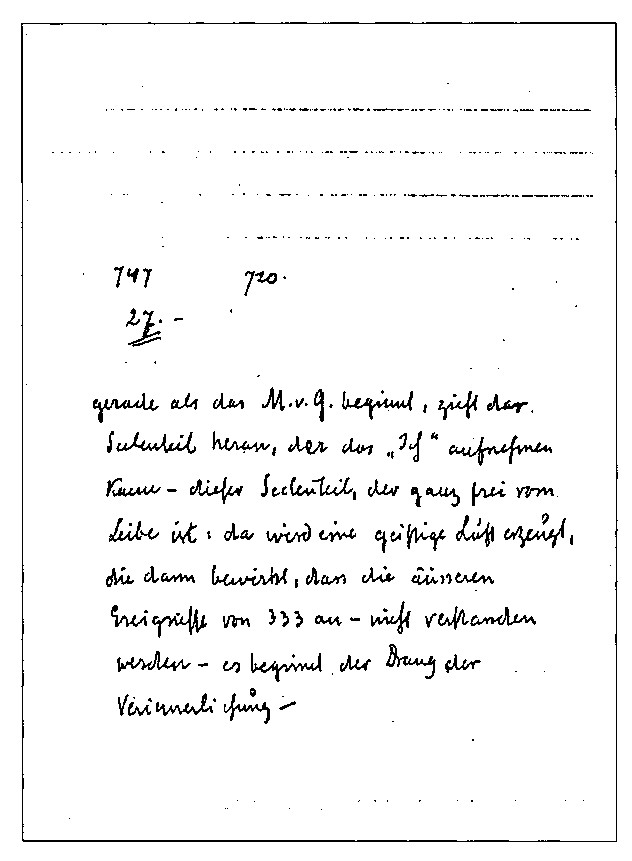 747 720.
27. –
gerade als das M. v. G. beginnt, zieht der
Seelenteil heran, der das „Ich“ aufnehmen
kann – dieser Seelenteil, der ganz frei vom
Leibe ist: da wird eine geistige Luft erzeugt,
die dann bewirkt, dass die äusseren
Ereignisse von 333 an – nicht verstanden
werden – es beginnt der Drang der
Verinnerlichung –